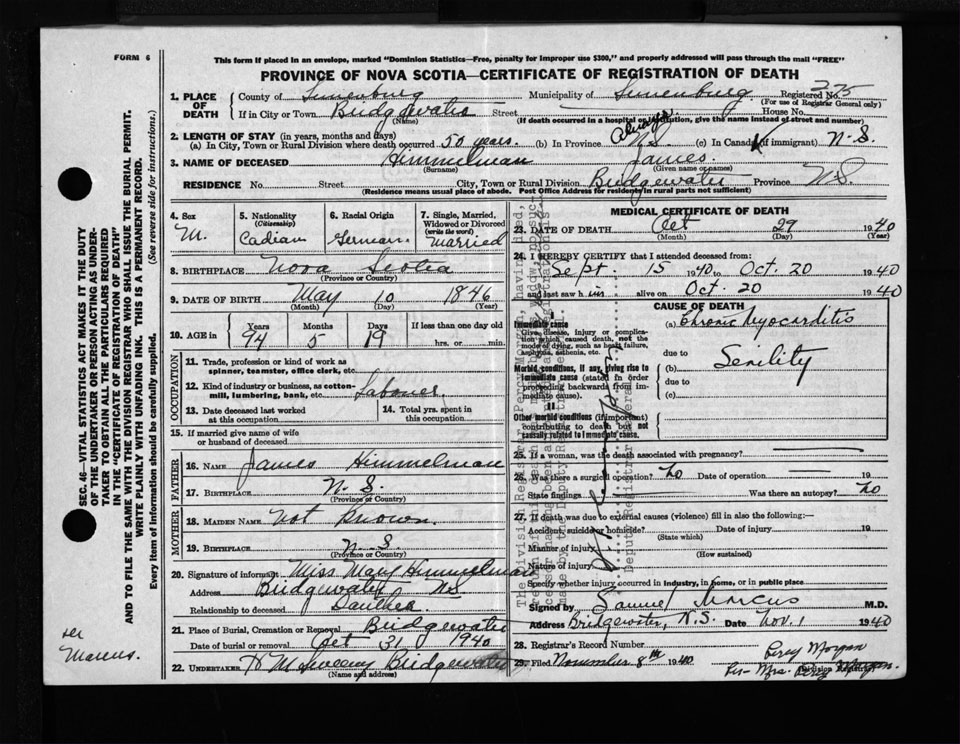 FORM 6
This form if placed in an envelope, marked "Dominion Statistics—Free, penalty for improper use $300," and properly addressed will pass through the mail "FREE"
PROVINCE OF NOVA SCOTIA—CERTIFICATE OF REGISTRATION OF DEATH
1. PLACE OF DEATH
County of Lunenburg Municipality of Lunenburg Registered No. 275
(For use of Registrar General only)
If in City or Town Bridgewater Street House No.
(Name) (If death occurred in a hospital or institution, give the name instead of street and number)
2. LENGTH OF STAY (in years, months and days)
(a) In City, Town or Rural Division where death occurred 50 years. (b) In Province Always N.S. (c) In Canada (if immigrant) N-S.
3. NAME OF DECEASED Himmelman James.
(Surname) (Given name or names)
RESIDENCE No. Street City, Town or Rural Division Bridgewater Province N.S.
(Residence means usual place of abode. Post Office Address for residents in rural parts not sufficient)
4. Sex M.
5. Nationality (Citizenship) Cadian
6. Racial Origin German
7. Single, Married, Widowed or Divorced (write the word) Married
8. BIRTHPLACE Nova Scotia
(Province or Country)
9. DATE OF BIRTH May 10 1846
(Month) (Day) (Year)
10. AGE in Years 94 Months 5 Days 19 If less than one day old hrs. or min.
OCCUPATION
11. Trade, profession or kind of work as spinner, teamster, office clerk, etc.
12. Kind of industry or business, as cotton-mill, lumbering, bank, etc. Labourer
13. Date deceased last worked at this occupation
14. Total yrs. spent in this occupation
15. If married give name of wife or husband of deceased
FATHER
16. NAME James Himmelman
17. BIRTHPLACE N.S.
(Province or Country)
MOTHER
18. MAIDEN NAME Not Known.
19. BIRTHPLACE N.S
(Province or Country)
20. Signature of informant Miss Mary Himmelman
Address Bridgewater NS
Relationship to deceased Daughter
21. Place of Burial, Cremation or Removal Bridgewater
Date of burial or removal Oct 31 1940
22. UNDERTAKER H McSweeny Bridgewater
(Name and address)
MEDICAL CERTIFICATE OF DEATH
23. DATE OF DEATH Oct 29 1940
(Month) (Day) (Year)
24. I HEREBY CERTIFY that I attended deceased from:
Sept. 15 1940 to Oct. 20 1940
and last saw him alive on Oct. 20 1940
CAUSE OF DEATH
Immediate cause
Give disease, injury or complication which caused death, not the mode of dying, such as heart failure, asphyxia, asthenia, etc.
(a) Chronic Myocarditis
due to
Morbid conditions, if any, giving rise to immediate cause (stated in order proceeding backwards from immediate cause)
(b) Senility
due to
(c)
II
Other morbid conditions (if important) contributing to death but not causally related to immediate cause.
25. If a woman, was the death associated with pregnancy?
26. Was there a surgical operation? no Date of operation 19
State findings Was there an autopsy? no
27. If death was due to external causes (violence) fill in also the following:—
Accident, suicide or homicide? Date of injury 19
(State which)
Manner of injury
(How sustained)
Nature of injury
Specify whether injury occurred in industry, in home, or in public place
Signed by Samuel Marcus M.D.
Address Bridgewater, N.S. Date Nov. 1 1940
28. Registrar's Record Number
29. Filed November 8th 1940 Percy Morgan
Per- Mrs. Percy Morgan.
Division Registrar
SEC. 46—VITAL STATISTICS ACT MAKES IT THE DUTY
OF THE UNDERTAKER OR PERSON ACTING AS UNDER-
TAKER TO OBTAIN ALL THE PARTICULARS REQUIRED
IN THE "CERTIFICATE OF REGISTRATION OF DEATH"
AND TO FILE THE SAME WITH THE DIVISION REGISTRAR WHO SHALL ISSUE THE BURIAL PERMIT.
WRITE PLAINLY WITH UNFADING INK. THIS IS A PERMANENT RECORD.
Every item of information should be carefully supplied. (See reverse side for instructions.)
Marcus.